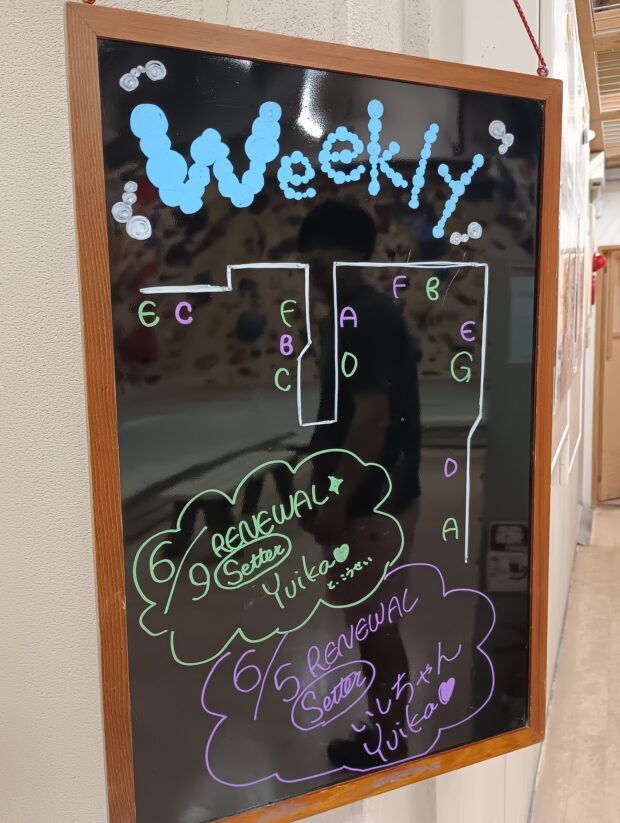 Weekly
F B
E C F A E
B
C D G
D
A
6/9 RENEWAL
Setter
Yuika♥
と、こうせい
6/5 RENEWAL
Setter
いしちゃん
Yuika♥